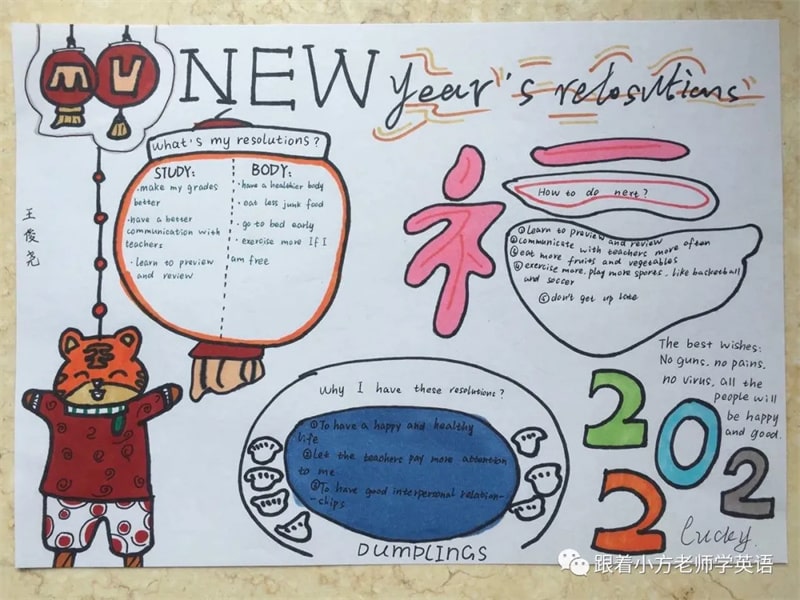 NEW Year's relosultians
王俊尧
What's my resolutions?
STUDY:
·make my grades
better
·have a better
communication with
teachers
·learn to preview
and review
BODY:
·have a healthier body
·eat less junk food
·go to bed early
·exercise more If I
am free
How to do next?
①learn to preview and review
②communicate with teachers more often
③eat more fruits and vegetables
④exercise more, play more sports, like basketball
and soccer
⑤don't get up late
Why I have these resolutions?
①To have a happy and healthy
life
②Let the teachers pay more attention
to me
③To have good interpersonal relation-
-ships
DUMPLINGS
The best wishes:
No guns, no pains,
no virus, all the
people will
be happy
and good.
2022
lucky.
跟着小方老师学英语